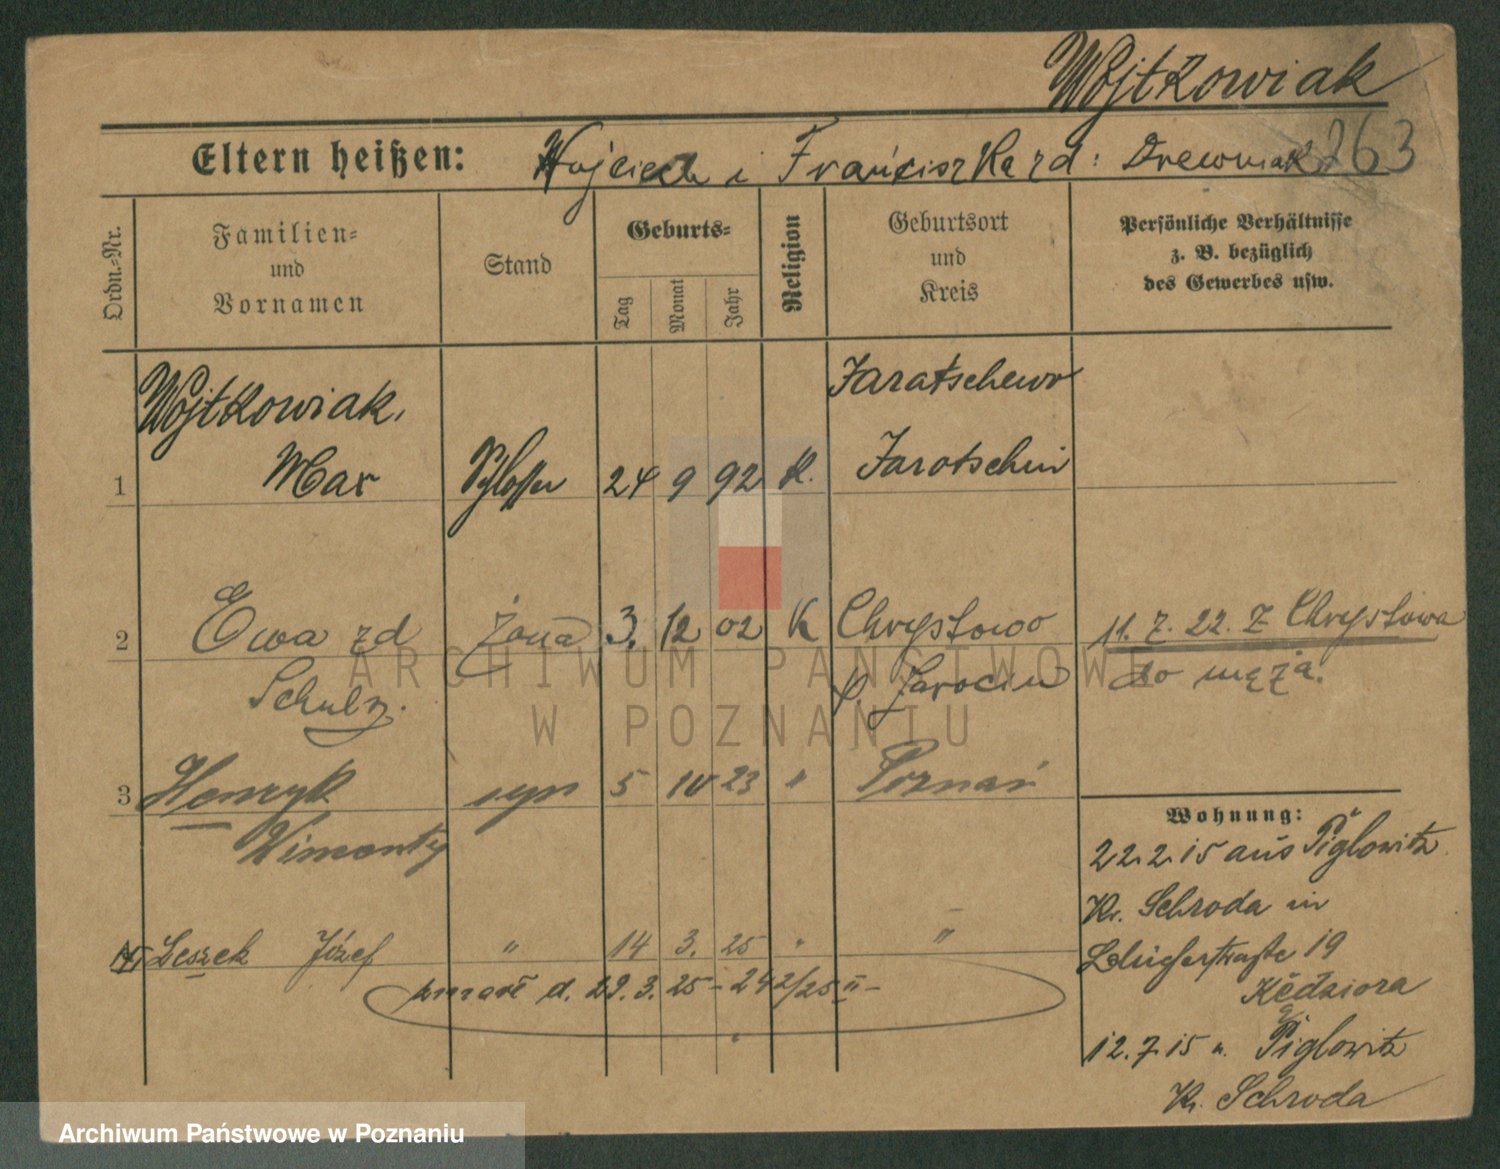 Wojtkowiak
263
Eltern heißen: Wojciech i Franciszka zd: Drewniak
Ordn.-Nr.
Familien- und Vornamen
Stand
Geburts-
Tag
Monat
Jahr
Religion
Geburtsort und Kreis
Persönliche Verhältnisse
z. B. bezüglich
des Gewerbes usw.
Wojtkowiak, Jaratschewo
1 Max Schlosser 24 9 92 K. Jarotschin
2 Ewa zd żona 3. 12 02 K Chrystowo 11. 7. 22. z Chrystowa
Schulz. p. Jarocin do męża.
3 Henryk syn 5 10 23 " Poznań
Wohnung:
22.2.15 aus Piglowitz
Kr. Schroda in
19
4 Leszek Józef " 14 3. 25 " "
zmarł d. 29. 3. 25 - 242/25 II -
12.7.15 n. Piglowitz
Kr. Schroda
ARCHIWUM PAŃSTWOWE
W POZNANIU
Archiwum Państwowe w Poznaniu